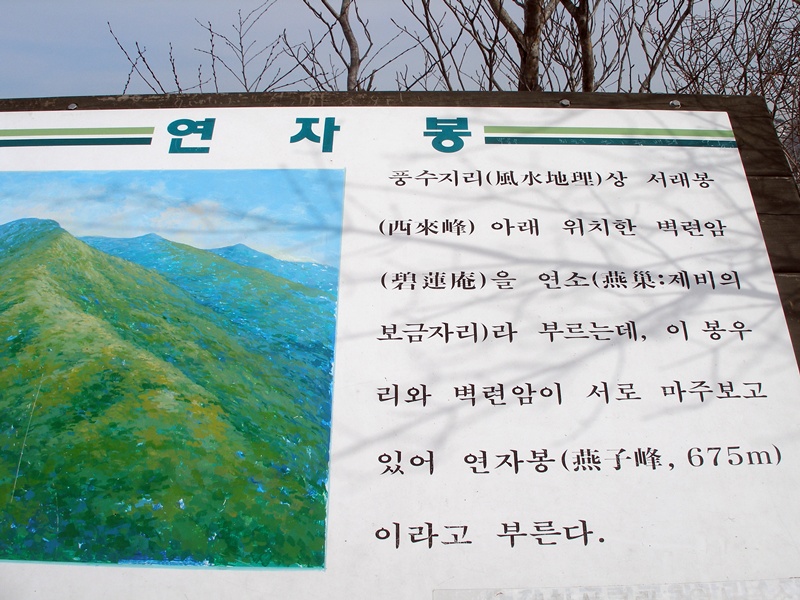 연 자 봉
풍수지리(風水地理)상 서래봉
(西來峰) 아래 위치한 벽련암
(碧蓮庵)을 연소(燕巢:제비의
보금자리)라 부르는데, 이 봉우
리와 벽련암이 서로 마주보고
있어 연자봉(燕子峰, 675m)
이라고 부른다.